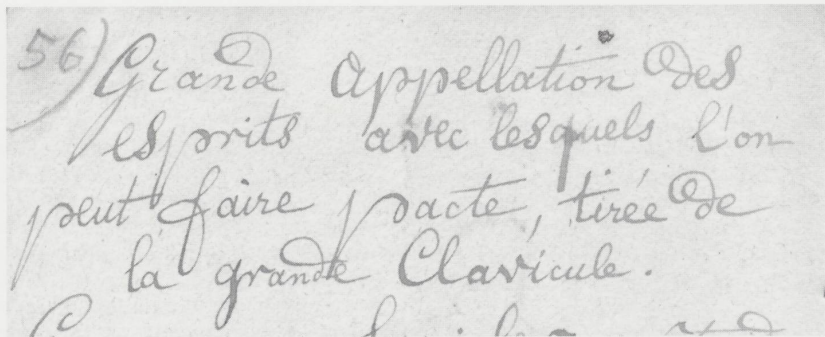 56) Grande appellation des
esprits avec lesquels l'on
peut faire pacte, tirée de
la grande Clavicule.